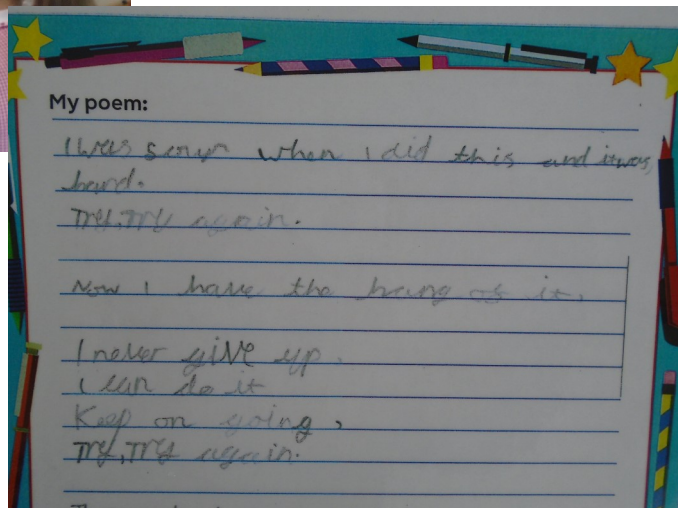 My poem:
I was when I did this and it was
hard.
Try, Try again.
Now I have the hang of it.
I never give up.
I can do it
Keep on going,
Try, Try again.